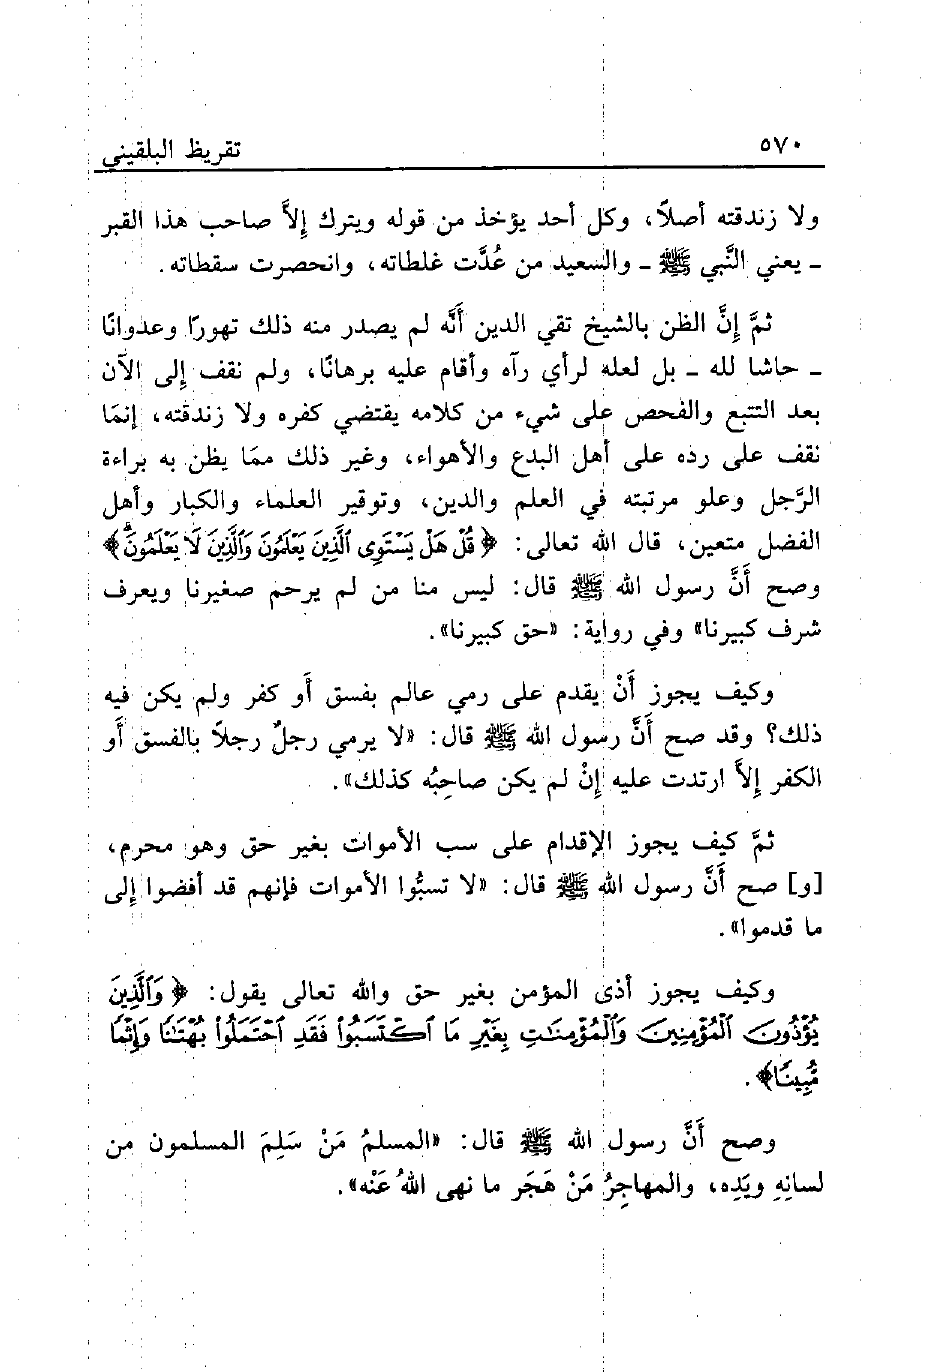 ٥٧٠ تقريظ البلقيني
ولا زندقته أصلاً، وكل أحد يؤخذ من قوله ويترك إلاَّ صاحب هذا القبر
ـ يعني النَّبي ﷺ ـ والسعيد من عُدَّت غلطاته، وانحصرت سقطاته.
ثمَّ إنَّ الظن بالشيخ تقي الدين أنَّه لم يصدر منه ذلك تهورًا وعدوانًا
ـ حاشا لله ـ بل لعله لرأي رآه وأقام عليه برهانًا، ولم نقف إلى الآن
بعد التتبع والفحص على شيء من كلامه يقتضي كفره ولا زندقته، إنمَا
نقف على رده على أهل البدع والأهواء، وغير ذلك ممَا يظن به براءة
الرَّجل وعلو مرتبته في العلم والدين، وتوقير العلماء والكبار وأهل
الفضل متعين، قال الله تعالى: ﴿قُلْ هَلْ يَسْتَوِى ٱلَّذِينَ يَعْلَمُونَ وَٱلَّذِينَ لَا يَعْلَمُونَۗ﴾
وصح أَنَّ رسول الله ﷺ قال: ليس منا من لم يرحم صغيرنا ويعرف
شرف كبيرنا» وفي رواية: «حق كبيرنا».
وكيف يجوز أَنْ يقدم على رمي عالم بفسق أَو كفر ولم يكن فيه
ذلك؟ وقد صح أَنَّ رسول الله ﷺ قال: «لا يرمي رجلٌ رجلاً بالفسق أَو
الكفر إلاَّ ارتدت عليه إنْ لم يكن صاحِبُه كذلك».
ثمَّ كيف يجوز الإقدام على سب الأموات بغير حق وهو محرم،
[و] صح أَنَّ رسول الله ﷺ قال: «لا تسبُّوا الأموات فإنهم قد أفضوا إلى
ما قدموا».
وكيف يجوز أذى المؤمن بغير حق والله تعالى يقول: ﴿وَٱلَّذِينَ
يُؤْذُونَ ٱلْمُؤْمِنِينَ وَٱلْمُؤْمِنَٰتِ بِغَيْرِ مَا ٱكْتَسَبُوا۟ فَقَدِ ٱحْتَمَلُوا۟ بُهْتَٰنًا وَإِثْمًا
مُّبِينًا﴾.
وصح أَنَّ رسول الله ﷺ قال: «المسلمُ مَنْ سَلِمَ المسلمون من
لسانِهِ ويَدِه، والمهاجِرُ مَنْ هَجَر ما نهى اللهُ عَنْه».